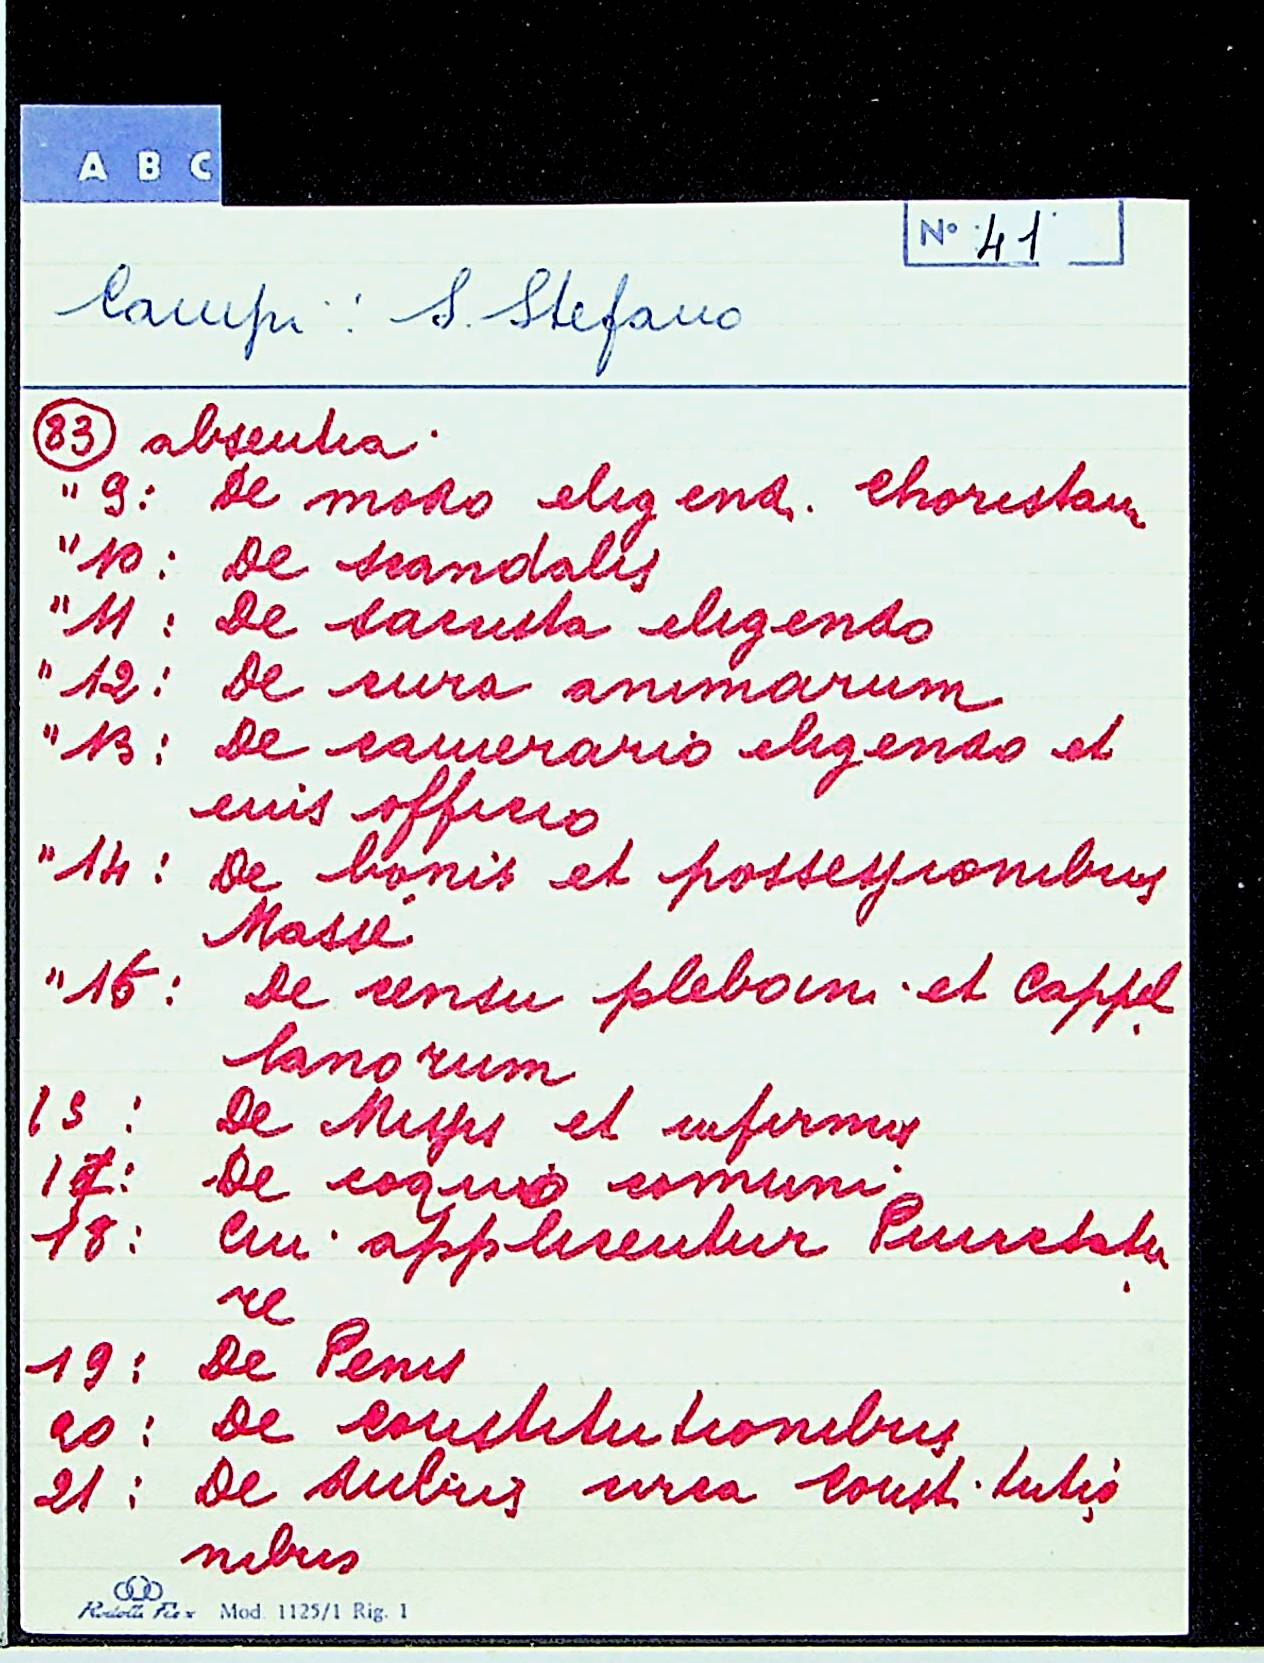 A B C
N° 41
Campi: S. Stefano
83 absentia.
" 9: De modo eligend. Choristam
" 10: De scandalis
" 11: De sacrista eligendo
" 12: De cura animarum
" 13: De camerario eligendo et
euis officio
" 14: De bonis et possessionibus
Masse
" 15: De censu pleban. et Cappel
lanorum
13: De Missis et infirmis
17: De coquo comuni
18: Cui applicentur Punctatu
re
19: De Penis
20: De constitutionibus
21: De dubiis circa constitutio
nibus
Rodolli Flex Mod. 1125/1 Rig. 1